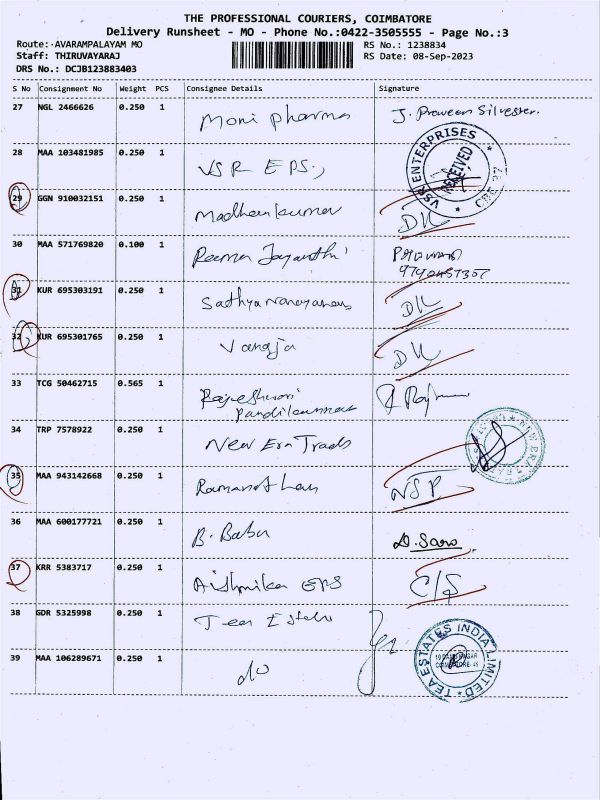 THE PROFESSIONAL COURIERS, COIMBATORE
Delivery Runsheet - MO - Phone No.:0422-3505555 - Page No.:3
Route:-AVARAMPALAYAM MO RS No.: 1238834
Staff: THIRUVAYARAJ RS Date: 08-Sep-2023
DRS No.: DCJB123883403
S No Consignment No Weight PCS Consignee Details Signature
27 NGL 2466626 0.250 1 Moni Pharma J. Praveen Silvester.
28 MAA 103481985 0.250 1 VSR EPS., VSR ENTERPRISES RECEIVED CBE
29 GGN 910032151 0.250 1 Madhankumar DL
30 MAA 571769820 0.100 1 Jayanthi
31 KUR 695303191 0.250 1 Sathyanarayanan DL
32 KUR 695301765 0.250 1 Vangja DL
33 TCG 50462715 0.565 1 Rajeshwari
Pandikannan
34 TRP 7578922 0.250 1 New Era Trads NEW ERA
35 MAA 943142668 0.250 1 NSP
36 MAA 600177721 0.250 1 B. Babu D. Saro
37 KRR 5383717 0.250 1 Aishmika EPS C/S
38 GDR 5325998 0.250 1 Tea Estate
39 MAA 106289671 0.250 1 do TEAESTATES INDIA LIMITED COIMBATORE